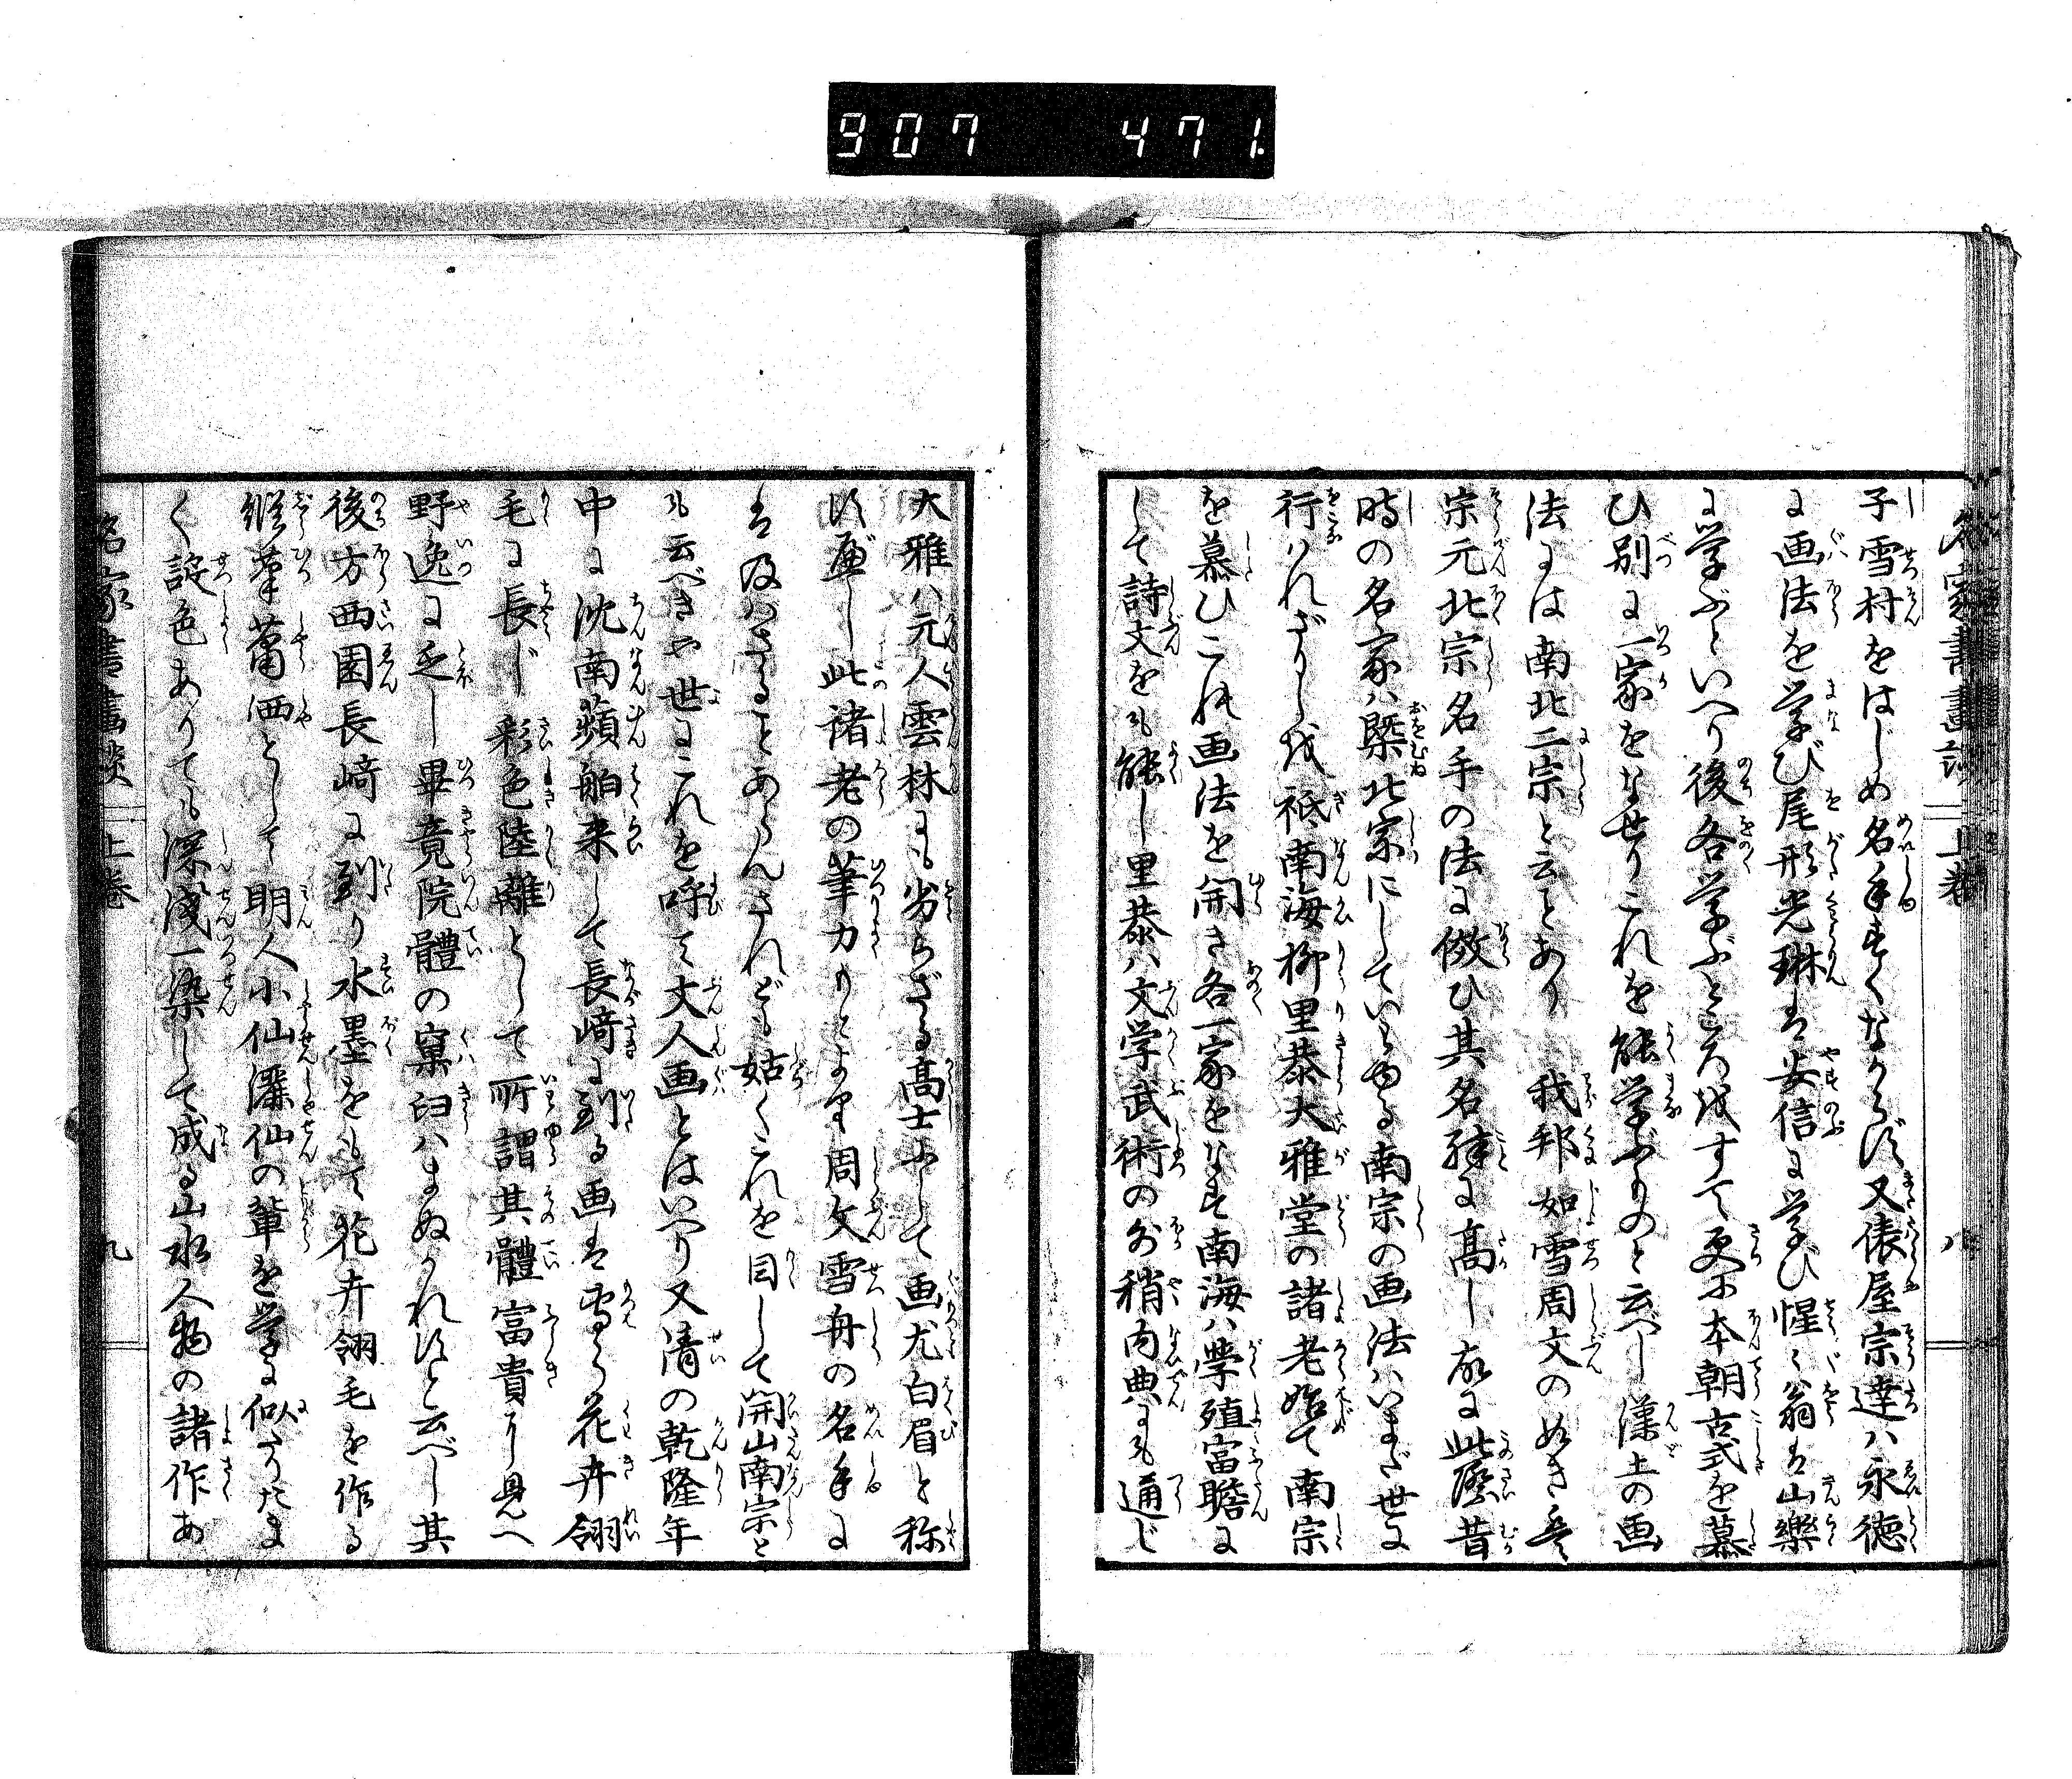 907 471
名家書畫談 上巻 八
子雪村をはじめ名手すくなからず又俵屋宗達ハ永徳
に画法を学び尾形光琳は安信に学び惺々翁は山樂
に学ぶといへり後各学ぶところ我すて更に本朝古式を慕
ひ別に一家をなせりこれを能学ぶものと云べし漢土の画
法には南北二宗と云ことあり我邦如雪周文のぬき
宗元北宗名手の法に倣ひ其名殊に高し故に此際昔
時の名家ハ槩北宗にしていはゆる南宗の画法ハいまだ世に
行はれざりしを祇南海柳里恭大雅堂の諸老始て南宗
を慕ひこれ画法を開き各一家をなす南海ハ學殖富贍に
して詩文をも能し里恭ハ文学武術の外稍内典にも通じ
大雅ハ元人雲林にも劣らざる高士にして画尤白眉と称
すべし此諸老の筆力もとより周文雪舟の名手に
は及バざることあらんされども姑くこれを目して開山南宗と
も云べきや世にこれを呼て文人画とはいへり又清の乾隆年
中に沈南蘋舶来して長崎に到る画は専ら花卉翎
毛に長じ彩色陸離として所謂其體富貴に見へ
野逸に乏し畢竟院體の窠臼ハまぬかれずと云べし其
後方西園長崎に到り水墨をもて花卉翎毛を作る
縦筆蕭洒として明人小仙瀑仙の輩を学に似たりたま
く設色ありても深浅一染して成る山水人物の諸作あ
名家書畫談 上巻 九